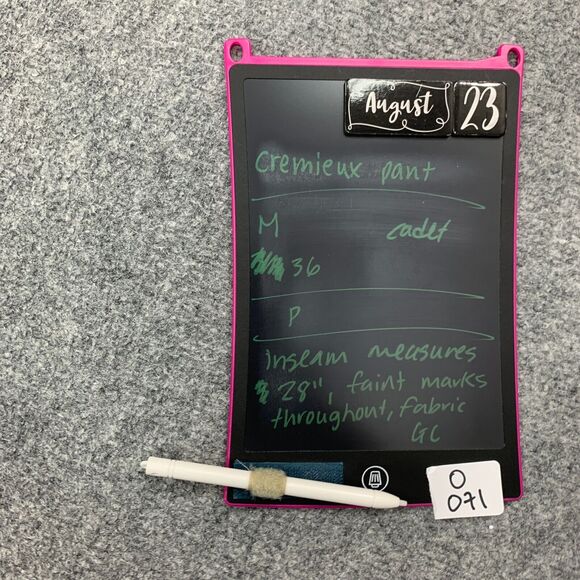 August 23
Cremieux pant
M cadet
36
P
Inseam measures
28", faint marks
throughout, fabric
GC
O
071